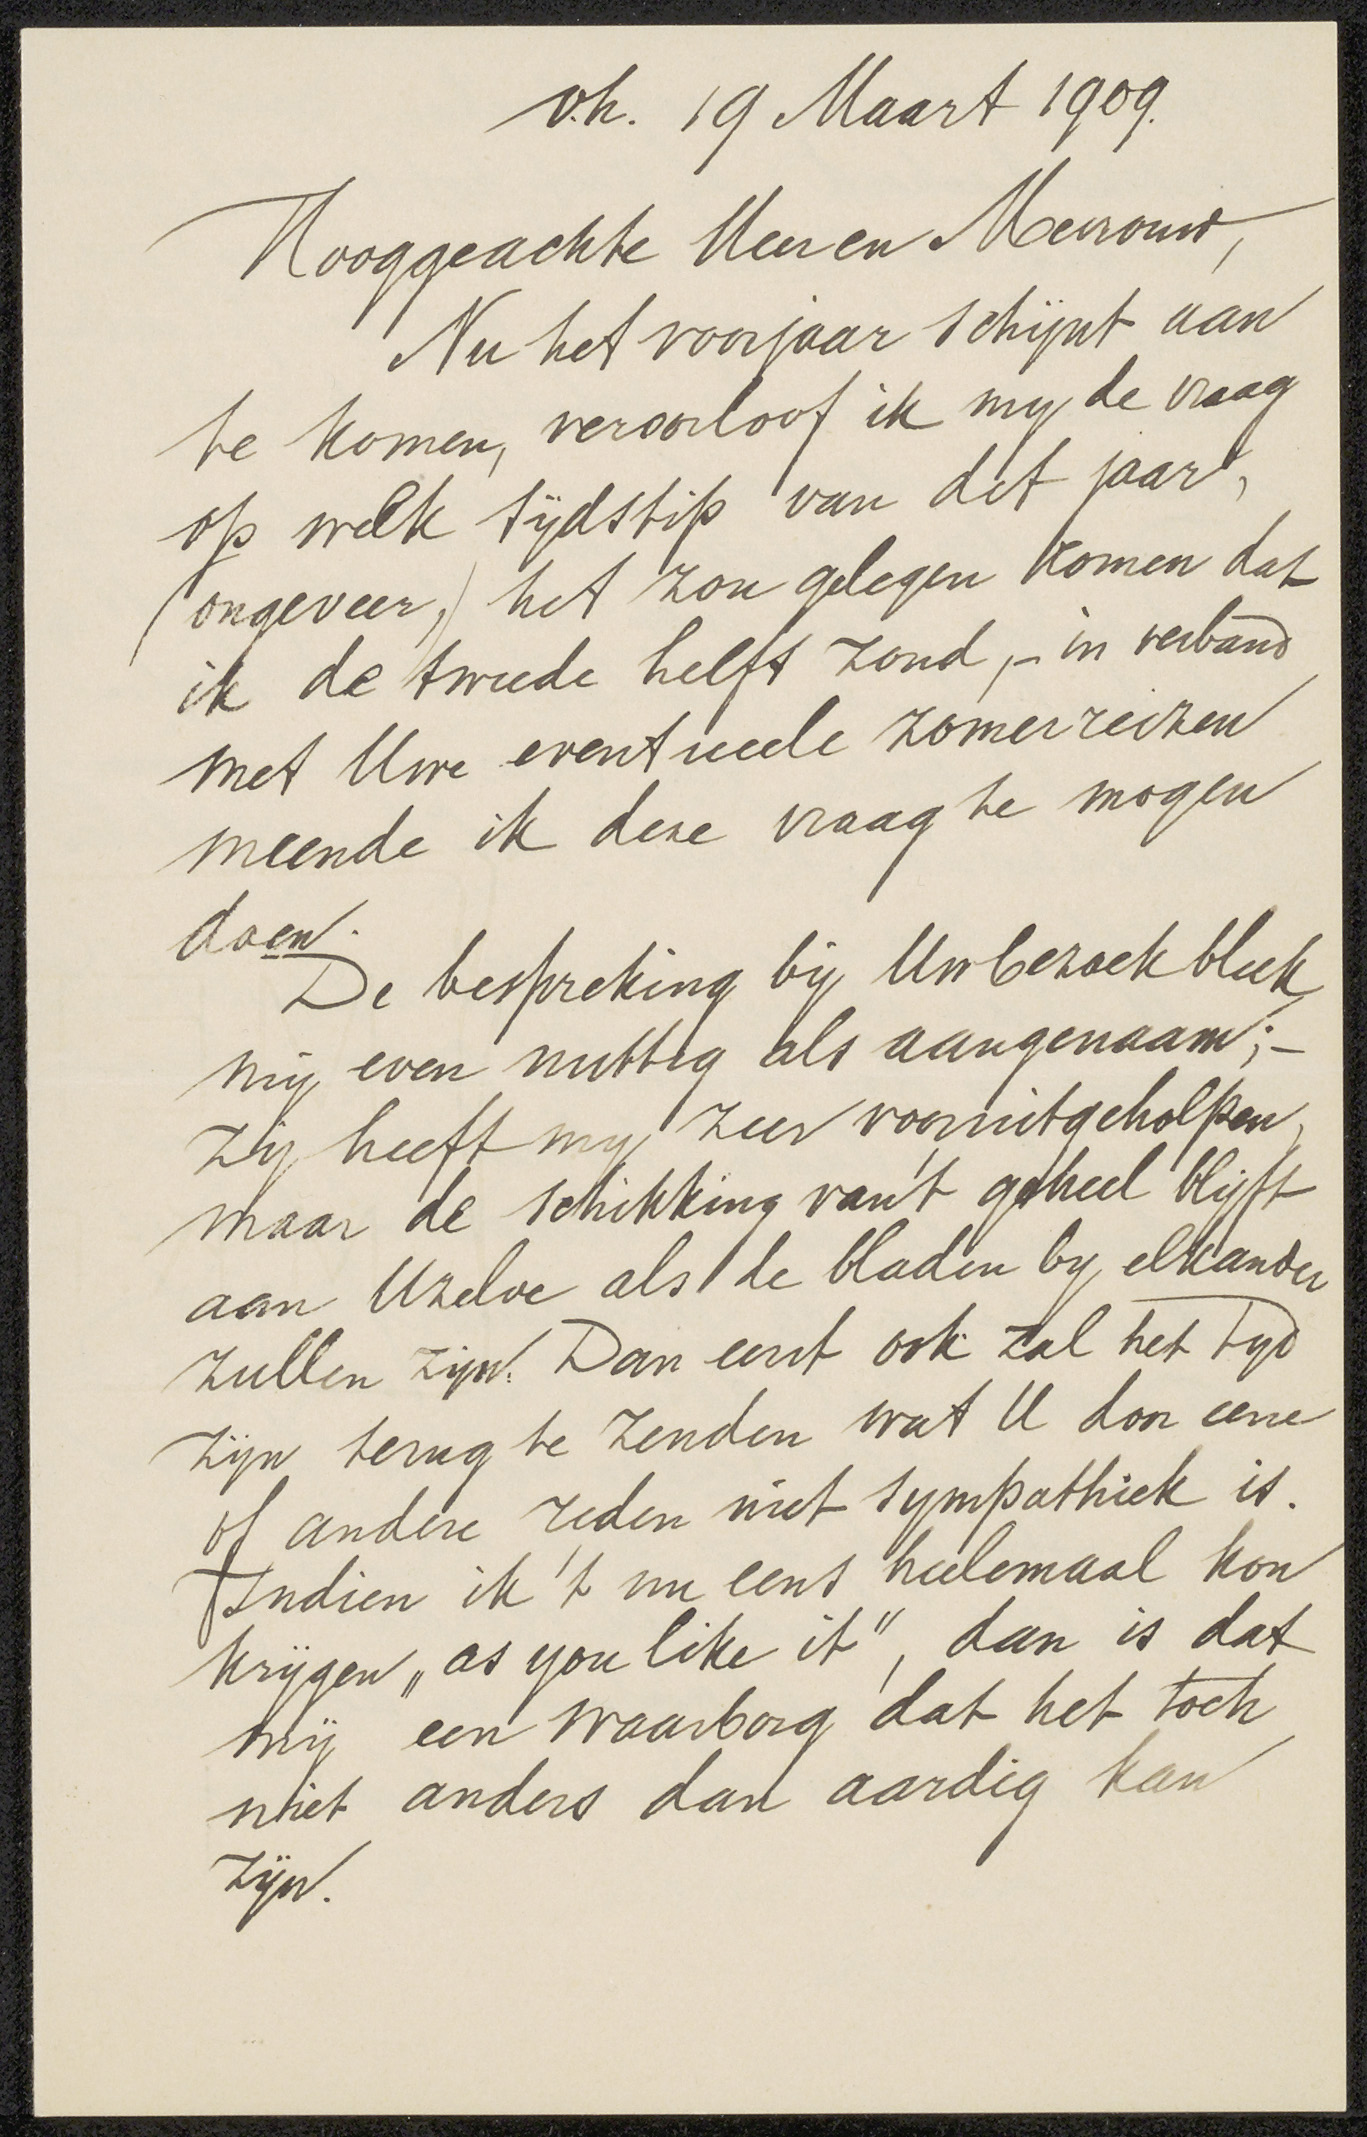 v.h. 19 Maart 1909.
Hooggeachte Heer en Mevrouw,
Nu het voorjaar schijnt aan
te komen, veroorloof ik my de vraag
op welk tijdstip van dit jaar,
(ongeveer,) het zou gelegen komen dat
ik de tweede helft zond, - in verband
met Uwe eventueele zomerreizen
meende ik deze vraag te mogen
doen.
De bespreking bij Uw bezoek bleek
mij even nuttig als aangenaam; -
zij heeft my zeer vooruitgeholpen,
maar de schikking van 't geheel blijft
aan Uzelve als de bladen by elkander
zullen zijn. Dan eerst ook zal het tyd
zijn terug te zenden wat U door eene
of andere reden niet sympathiek is.
Indien ik 't nu eens heelemaal kon
krijgen „as you like it", dan is dat
mij een waarborg dat het toch
niet anders dan aardig kan
zijn.